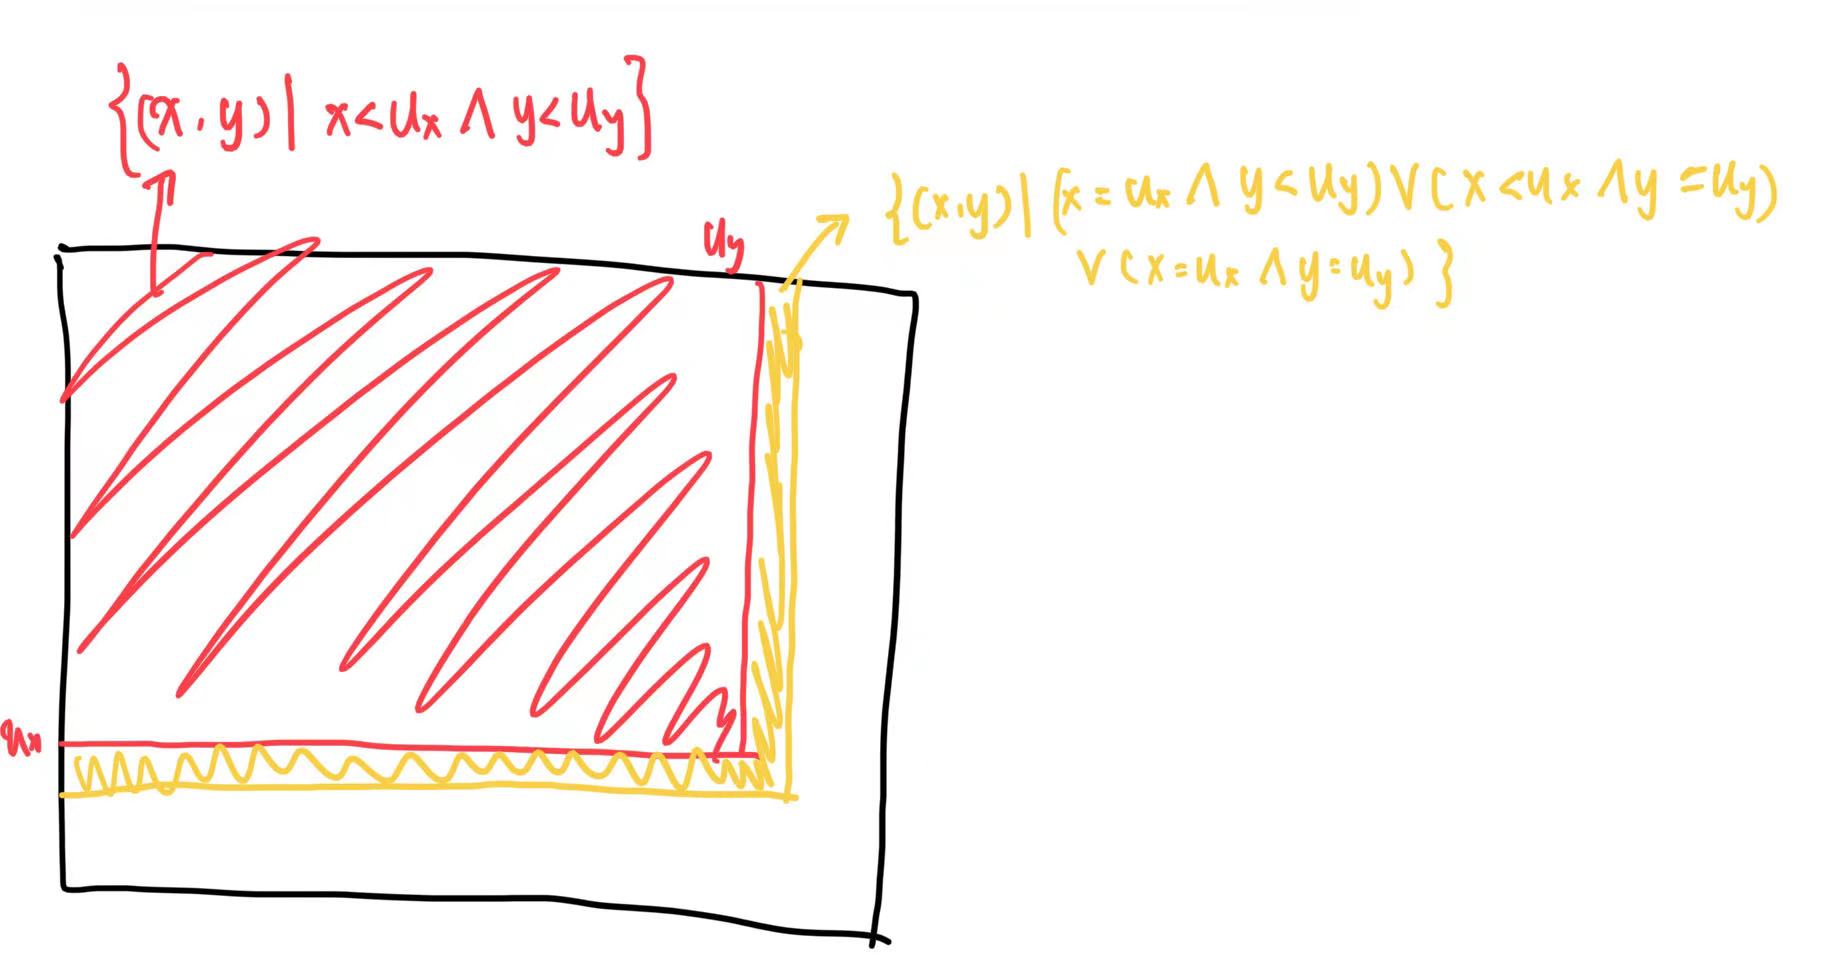 {(x,y)| x<uₓ ∧ y<u_y}
{(x,y)| (x=uₓ ∧ y<u_y) ∨ (x<uₓ ∧ y=u_y)
∨ (x=uₓ ∧ y=u_y) }
u_y
uₓ